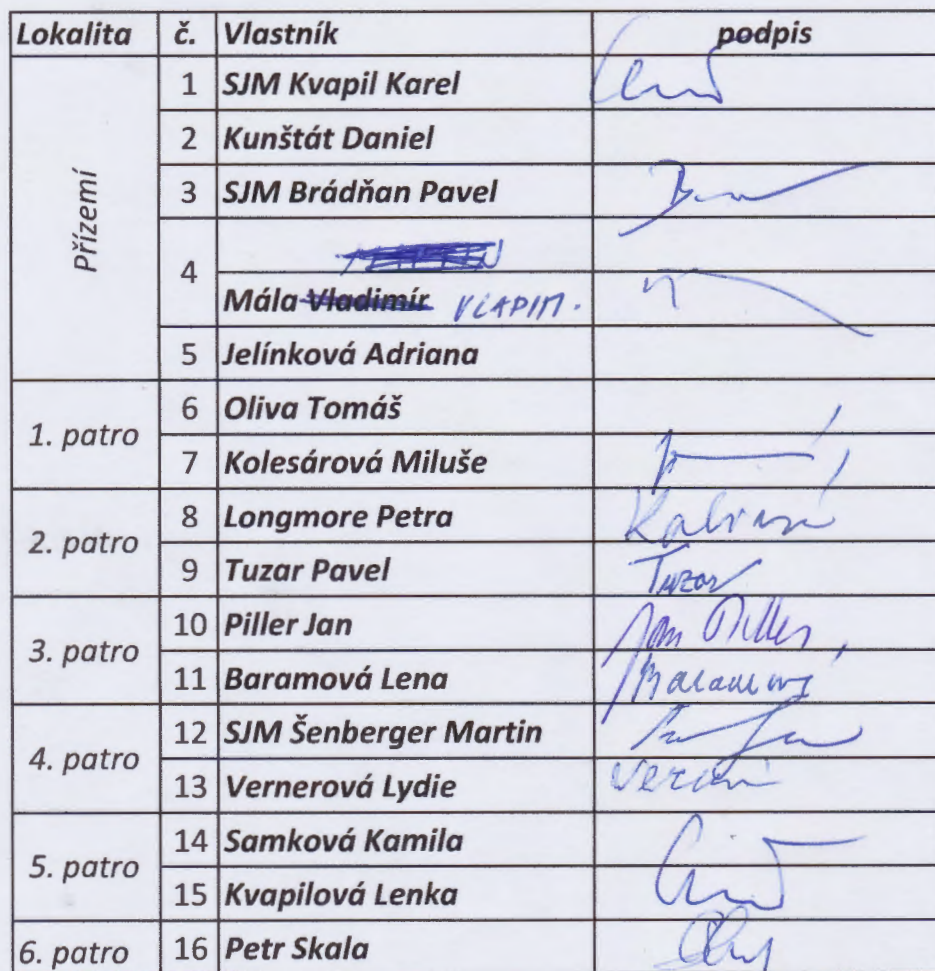 Lokalita č. Vlastník podpis
Přízemí
1 SJM Kvapil Karel
2 Kunštát Daniel
3 SJM Brádňan Pavel
4
Mála Vladimír
5 Jelínková Adriana
1. patro
6 Oliva Tomáš
7 Kolesárová Miluše
2. patro
8 Longmore Petra
9 Tuzar Pavel Tuzar
3. patro
10 Piller Jan Jan Piller
11 Baramová Lena
4. patro
12 SJM Šenberger Martin
13 Vernerová Lydie
5. patro
14 Samková Kamila
15 Kvapilová Lenka
6. patro 16 Petr Skala